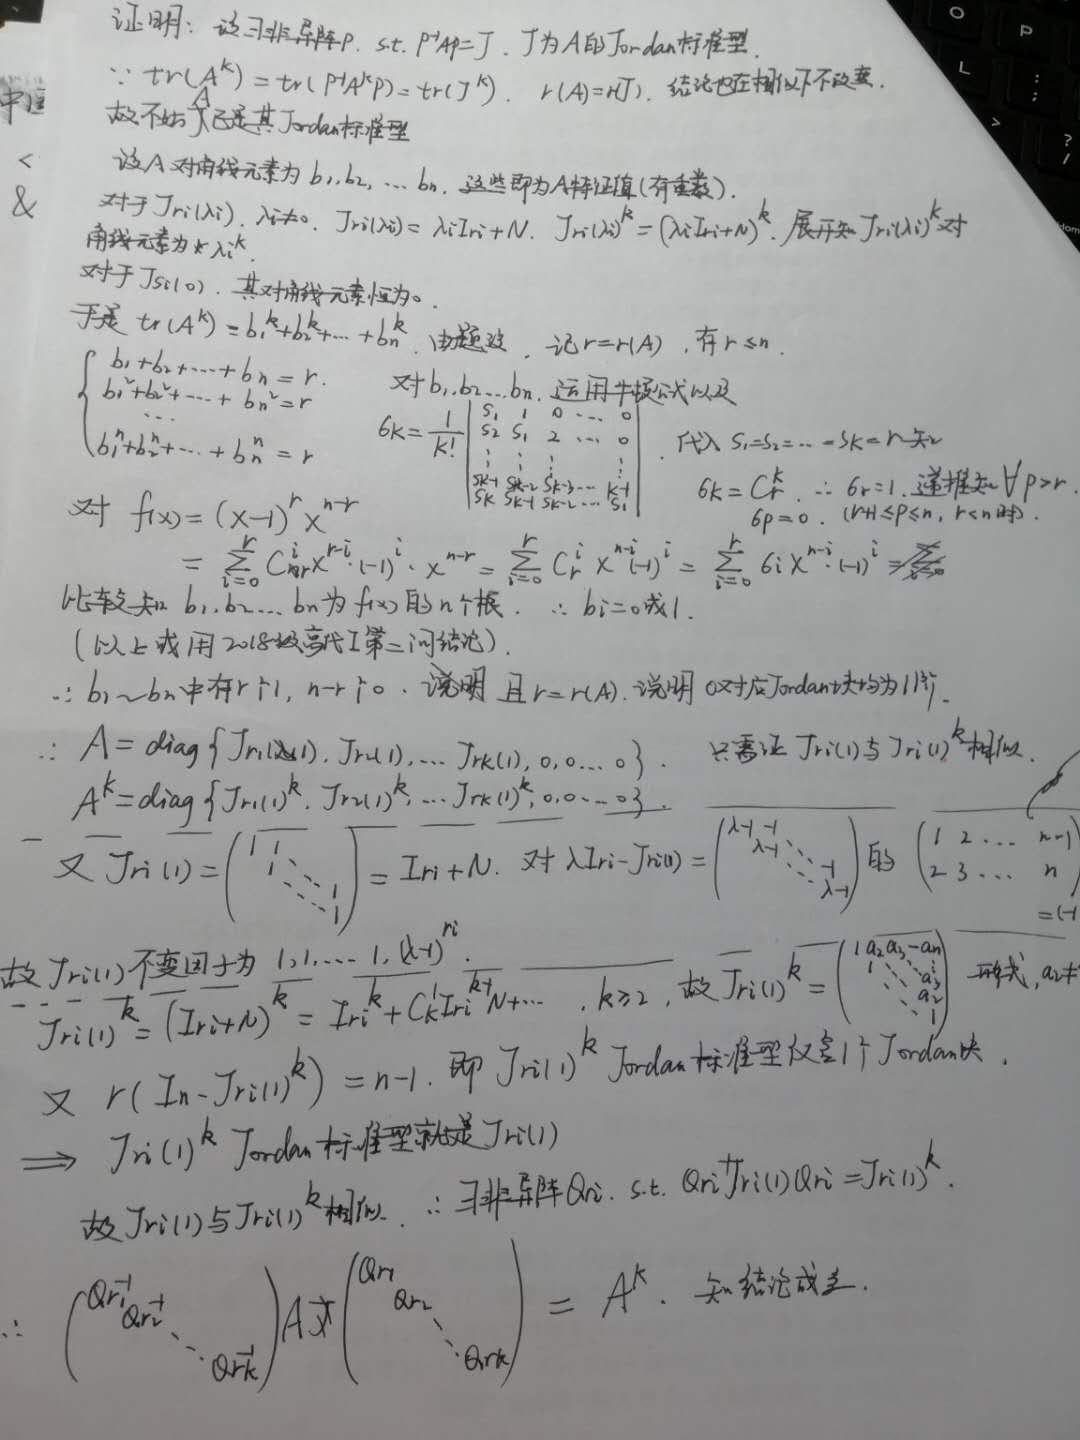 证明：设∃非异阵P. s.t. P⁻¹AP=J. J为A的Jordan标准型.
∵ tr(A^k) = tr(P⁻¹A^kP) = tr(J^k). r(A)=r(J). 结论也在相似下不改变.
故不妨A已是其Jordan标准型
设A对角线元素为 b₁,b₂,…bn. 这些即为A特征值(有重数).
对于Jri(λi), λi≠0. Jri(λi)=λiIri+N. Jri(λi)^k=(λiIri+N)^k. 展开知Jri(λi)^k对
角线元素为λi^k.
对于Jsi(0). 其对角线元素恒为0.
于是 tr(A^k)=b₁^k+b₂^k+…+bn^k. 由题设, 记r=r(A), 有r≤n.
b₁+b₂+…+bn=r.
b₁²+b₂²+…+bn²=r
…
b₁ⁿ+b₂ⁿ+…+bnⁿ=r
对b₁,b₂…bn, 运用牛顿公式以及
6k = 1/k! | S₁ 1 0 … 0
S₂ S₁ 2 … 0
⋮ ⋮ ⋮ ⋮
Sk-1 Sk-2 Sk-3 … k-1
Sk Sk-1 Sk-2 … S₁ | . 代入 S₁=S₂=…=Sk=r 知
6k=C_r^k. ∴ 6r=1. 递推知∀p>r.
6p=0. (r+1≤p≤n, r<n时).
对 f(x)=(x-1)^r x^{n-r}
= Σ_{i=0}^r C_r^i x^{r-i}·(-1)^i·x^{n-r} = Σ_{i=0}^r C_r^i x^{n-i}(-1)^i = Σ_{i=0}^r 6i x^{n-i}·(-1)^i
比较知 b₁,b₂…bn为f(x)的n个根. ∴ bi=0或1.
(以上或用2018级高代I第二问结论).
∴ b₁~bn中有r个1, n-r个0. 说明 且r=r(A). 说明 0对应Jordan块均为1阶.
∴ A=diag{Jr₁(1), Jr₂(1), … Jrk(1), 0,0…0}. 只需证 Jri(1)与Jri(1)^k相似.
A^k=diag{Jr₁(1)^k, Jr₂(1)^k, … Jrk(1)^k, 0,0…0}.
又 Jri(1)=(1 1 1 ⋱ 1 1) = Iri+N. 对 λIri-Jri(1)=(λ-1 -1 λ-1 ⋱ -1 λ-1) 的 (1 2 … n-1
2 3 … n)
=(-1
故Jri(1)不变因子为 1,1,…1,(λ-1)^ri.
Jri(1)^k=(Iri+N)^k=Iri^k+C_k^1 Iri^{k-1}N+…, k≥2, 故Jri(1)^k=(1 a₂ a₃ … an 1 ⋱ ⋮ a₃ a₂ 1) 形式, a₂≠
又 r(In-Jri(1)^k)=n-1. 即 Jri(1)^k Jordan标准型仅含1个Jordan块.
⇒ Jri(1)^k Jordan标准型就是Jri(1)
故Jri(1)与Jri(1)^k相似. ∴ ∃非异阵Qri. s.t. Qri⁻¹Jri(1)Qri=Jri(1)^k.
∴ (Qr₁⁻¹ Qr₂⁻¹ ⋱ Qrk⁻¹) A (Qr₁ Qr₂ ⋱ Qrk) = A^k. 知结论成立.